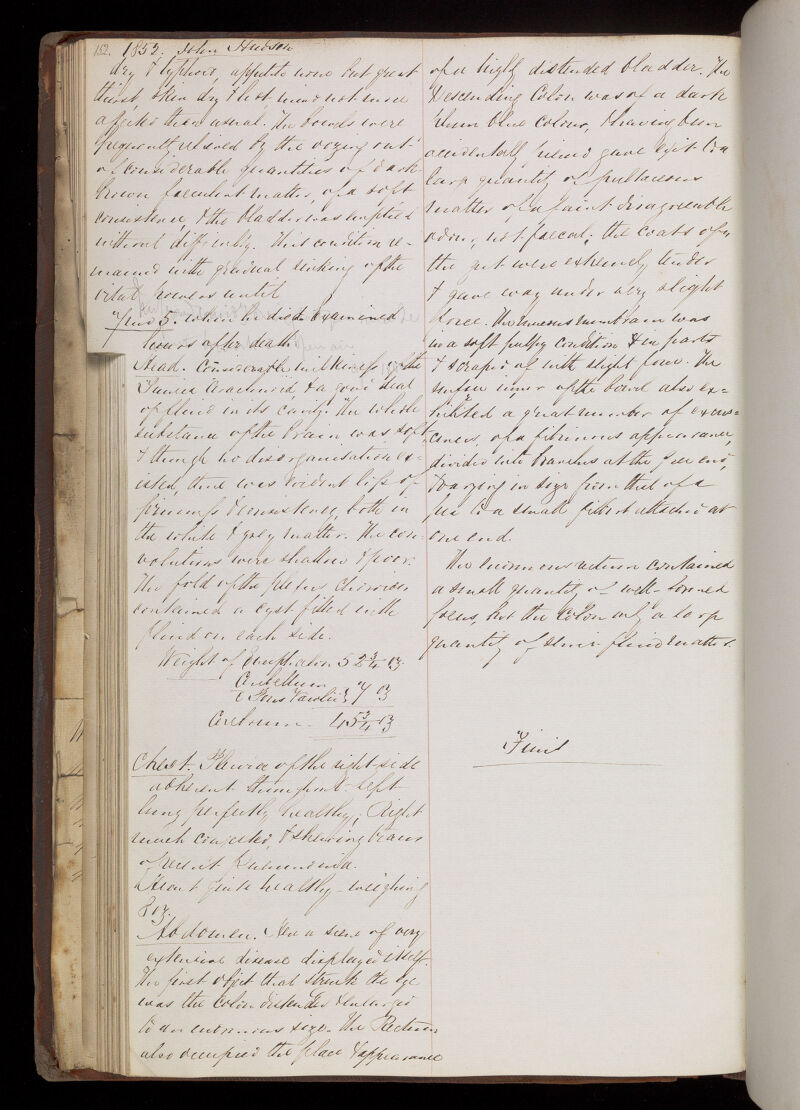 152. 1852. John Hudson
dry & typhoid, appetite were but great
thirst, skin dry & hot mind not more
affected than usual. The bowels were
frequently relieved by the oozing out
of considerable quantities of dark
brown faeculent matter, of a soft
consistence & the bladder was emptied
without difficulty. This condition re-
mained with gradual sinking of the
vital powers until
5. when he died. Examined
hours after death
Head. Considerable milkiness of the
Tunica Arachnoid, & a good deal
of fluid in its cavity. The whole
substance of the brain was soft,
& though no disorganisation ex-
isted, there was evident loss of
firmness & consistence, both in
the white & grey matter. The con-
volutions were shallow & poor.
The fold of the plexus choroides
contained a cyst filled with
fluid on each side.
Weight of Encephalon 52 3/4 oz.
Cerebellum
& Pons Varolii } 7 oz
Cerebrum. 45 3/4 oz
Chest. Pleura of the right side
adherent left
lung perfectly healthy; Right
much congested, & shewing traces
of recent pneumonia.
Heart quite healthy - weighing
8 oz.
Abdomen. Here a scene of very
extensive disease displayed itself.
The first object that struck the eye
was the Colon distended & enlarged
to an enormous size. The Rectum
also occupied the place & appearance
of a highly distended bladder. The
descending Colon was of a dark
plum blue colour, & having been
accidentally gave exit to a
large quantity of pultaceous
matter of a faint disagreeable
odour, not faecal; the coats of
the gut were extremely tender
& gave way under very slight
force. The mucous membrane was
in a soft pulpy condition & in parts
& scraped off with slight force. The
surface inner of the bowel also ex-
hibited a great number of excres-
cences, of a fibrinous appearance,
divided into branches at the free end,
& varying in size from that of a
pea to a small filbert attached at
one end.
The enormous rectum contained
a small quantity of well-formed
faeces, but the Colon only a large
quantity of semi-fluid matter.
Finis